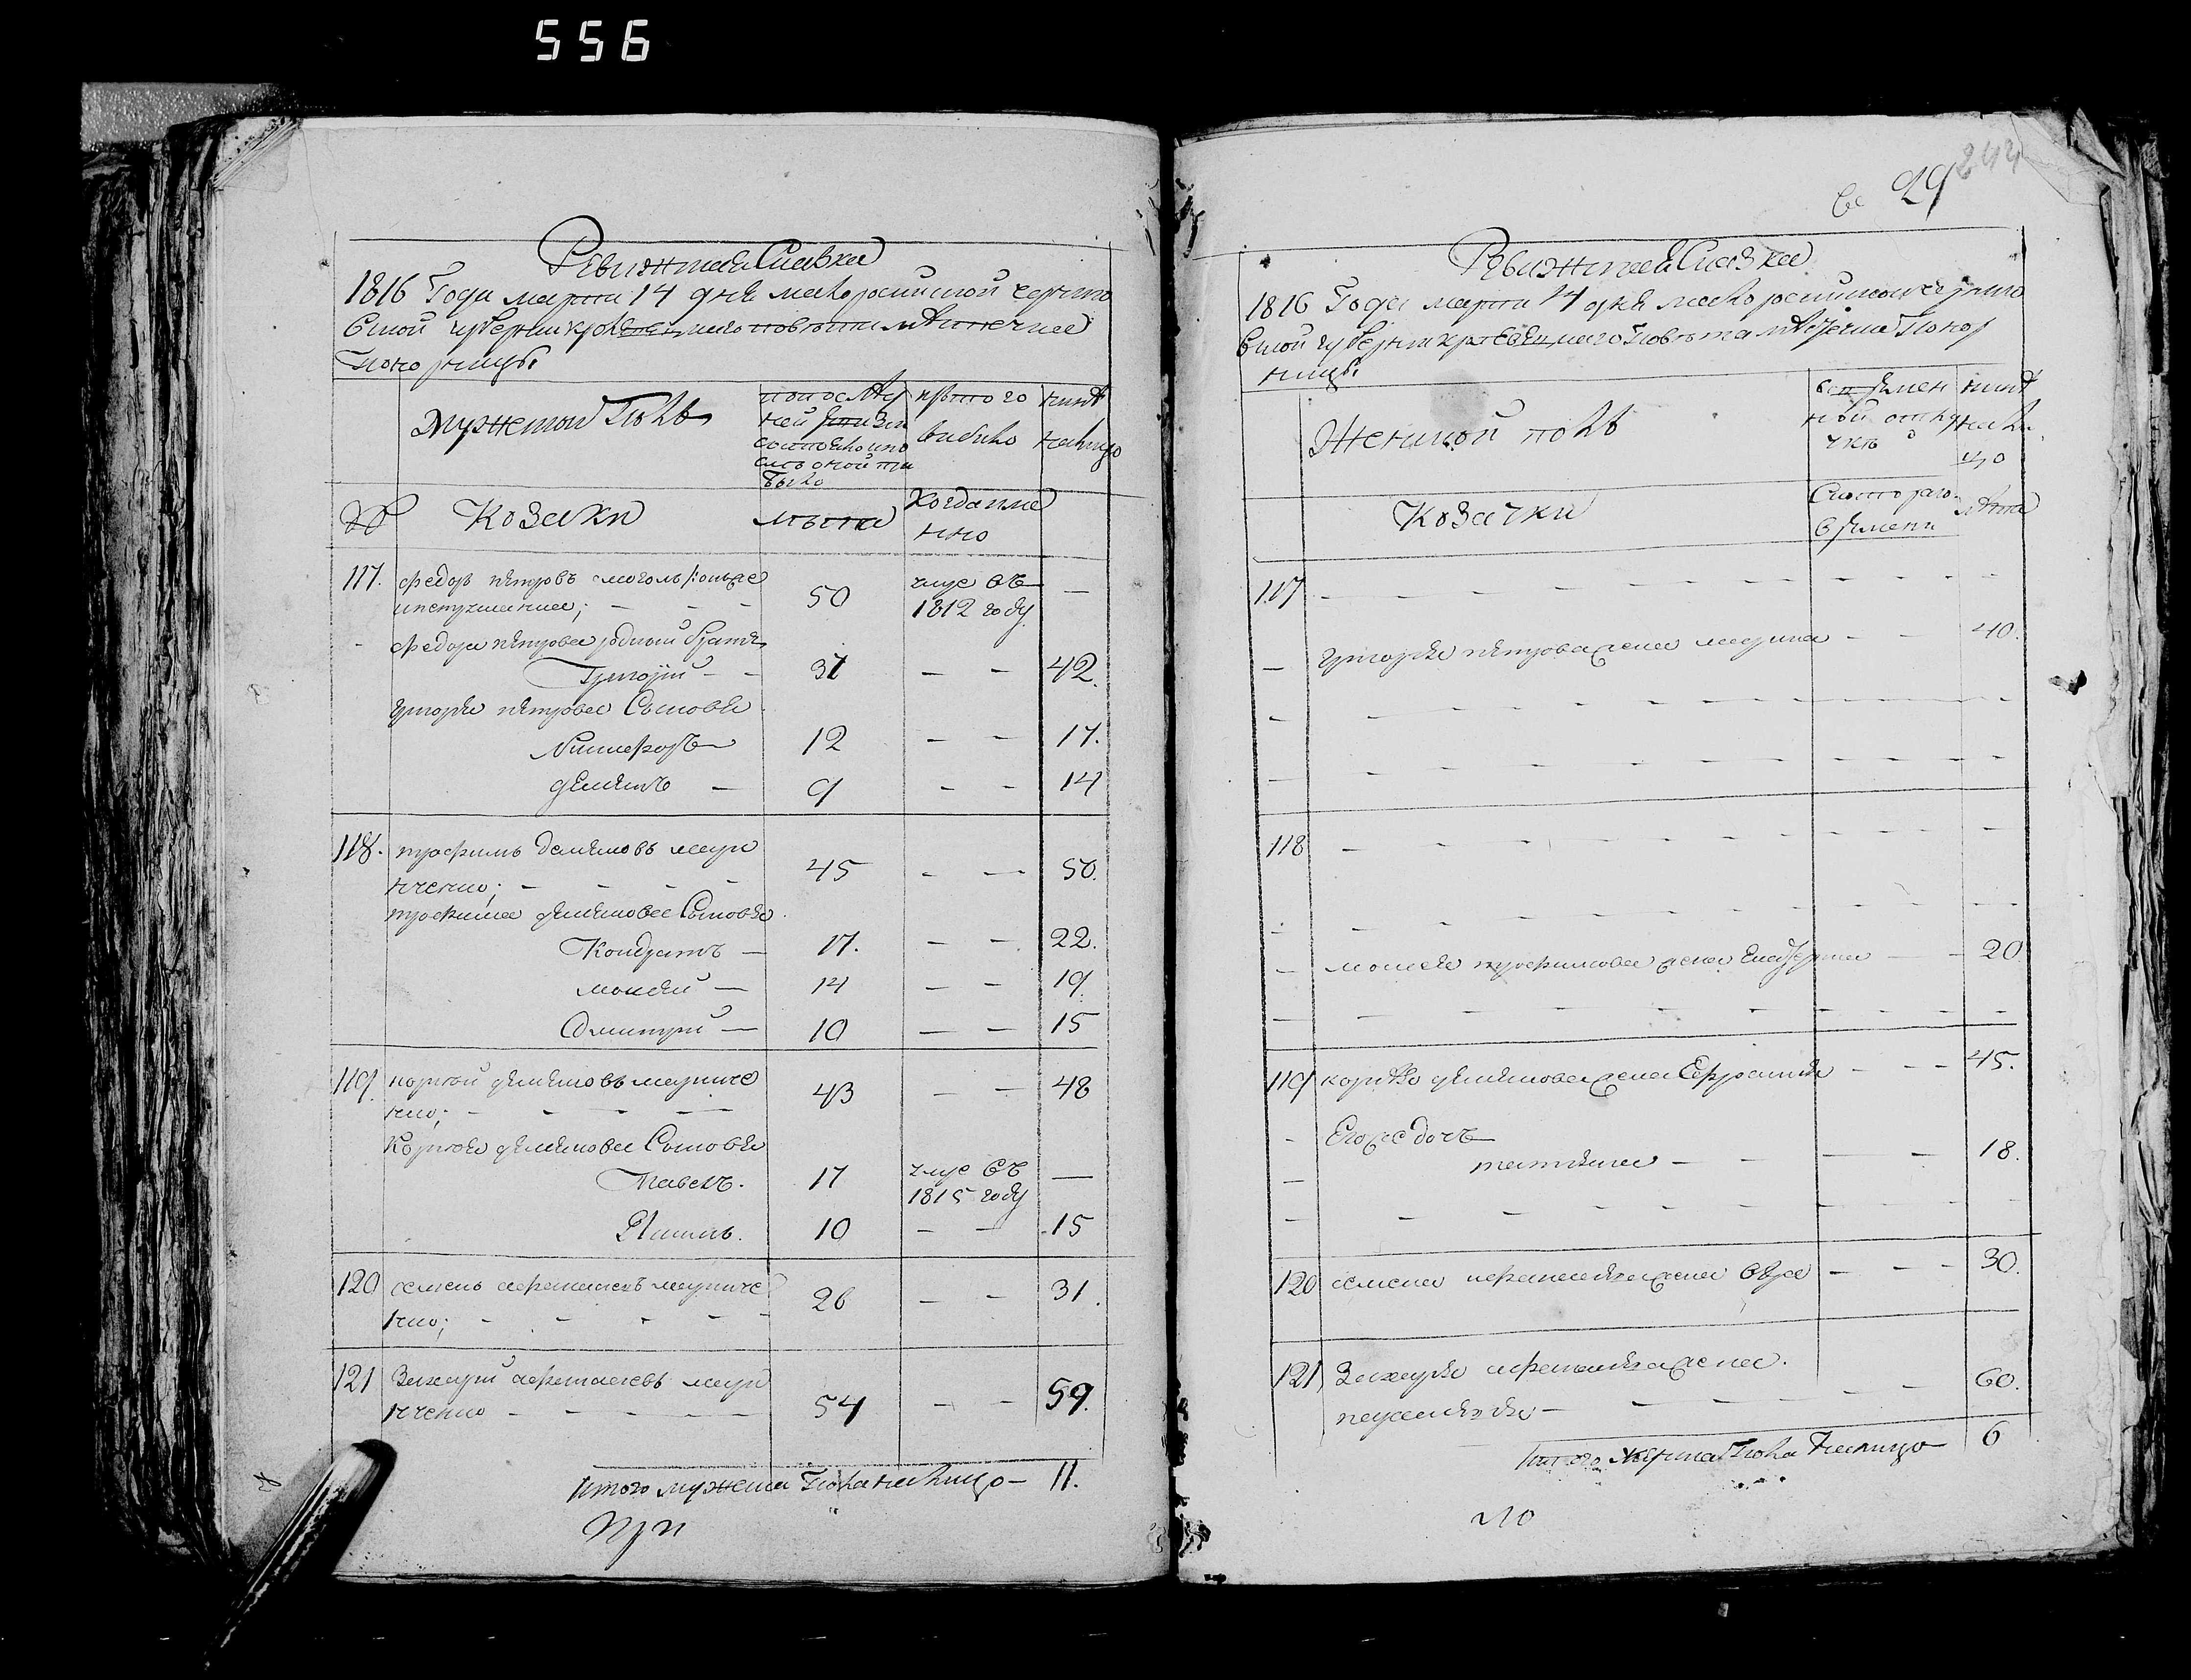 556
Ревизская Сказка
1816 Года марта 14 дня малороссийской черниго
вской губернии кролевецкого повета местечка
Понорницы
Мужеской Полъ
по последней ревизии состояло и после оной прибыло
изъ того выбыло
ныне налицо
№ Козаки
лета
Когда именно
117. Федор петровъ
50
умре въ 1812 году
—
Федора петрова родный братъ
Григорий - - 37 — — 42.
григория петрова Сыновья
Никифоръ 12 — — 17.
демянъ — 9 - - 14
118. трофимъ демяновъ мари
нченко; — 45 - — 50.
трофима демянова Сыновья
Кондратъ — 17. — — 22.
моисей — 14 — — 19.
Дмитрий — 10 — — 15
119. корней демяновъ мариче
нко; — 43 — — 48
Корнея демянова Сыновья
Павелъ. 17 умре въ 1815 году —
10 — — 15
120 семенъ афанасевъ мариче
нко; - 26 — — 31.
121 Захарий афанасевъ мари
нченко — 54 — — 59.
Итого мужеска Пола налицо — 11.
При
29 244
Ревизская Сказка
1816 Года марта 14 дня малороссийской черниго
вской губернии кролевецкого Повета местечка Понор
ницы
Женской полъ
во временной отлучке
ныне налицо
Козачки
Съ которого времени
лета
117 — — — —
— григория петрова жена марина — — 40.
118 — — — —
— моисея трофимова жена — — 20
119 корнея демянова жена Ефросиния — — 45.
- Его же дочь
татияна — — 18.
120 семена афанасева жена — — 30.
121 Захария афанасева жена
60.
Итого женска Пола Налицо 6
ло